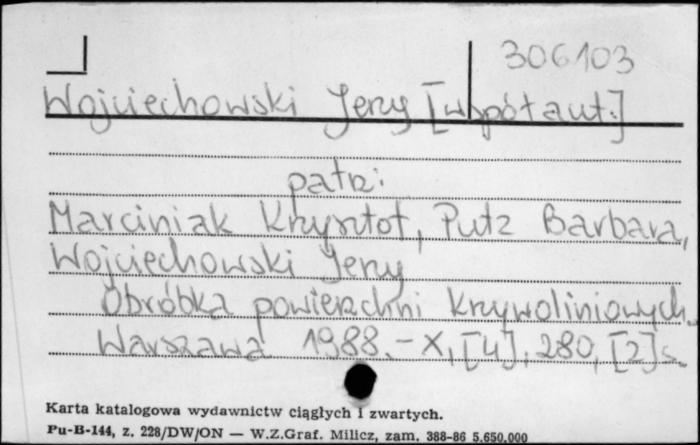 306103
Wojciechowski Jerzy [współaut.]
patrz:
Marciniak Krzysztof, Putz Barbara,
Wojciechowski Jerzy
Obróbka powierzchni krzywoliniowych.
Warszawa 1988. - X, [4], 280, [2] s.
Karta katalogowa wydawnictw ciągłych i zwartych.
Pu-B-144, z. 228/DW/ON — W.Z.Graf. Milicz, zam. 388-86 5.650.000